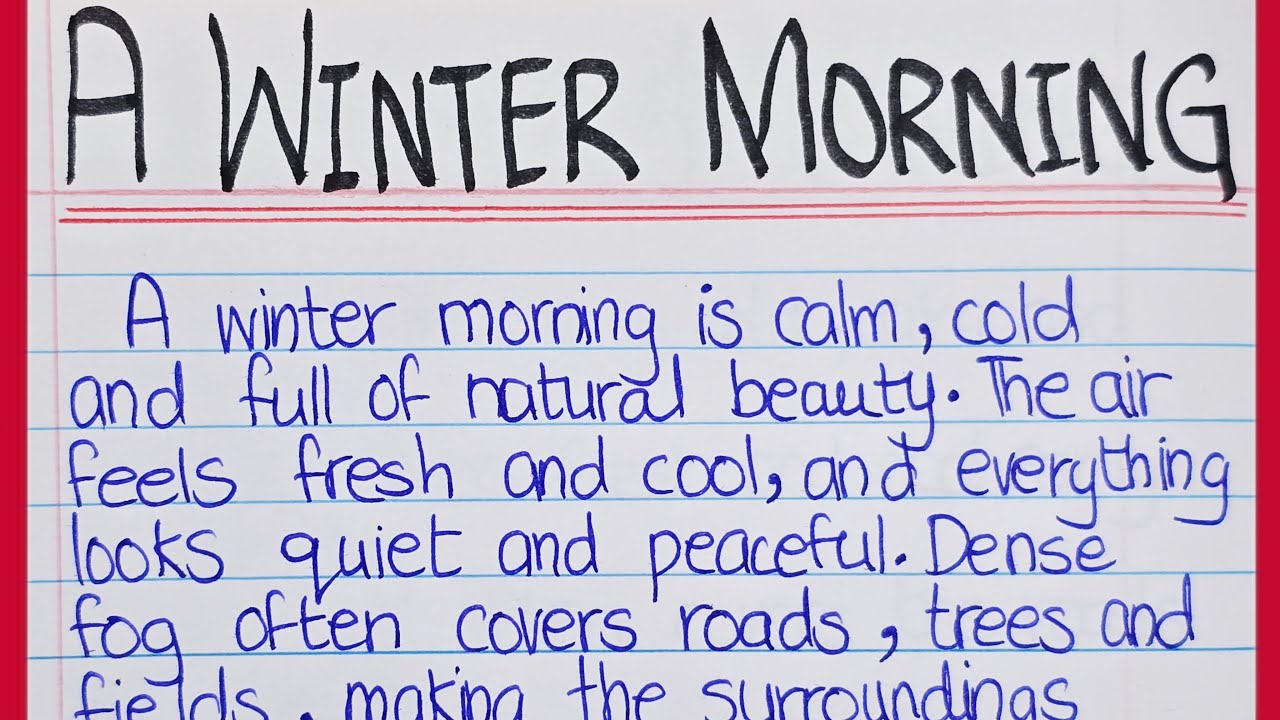 A WINTER MORNING
A winter morning is calm, cold
and full of natural beauty. The air
feels fresh and cool, and everything
looks quiet and peaceful. Dense
fog often covers roads, trees and
fields, making the surroundings